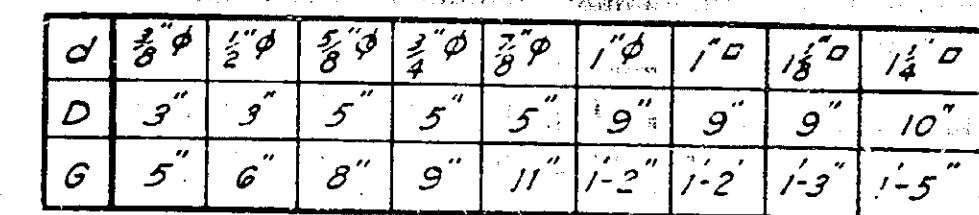 d 3/8"ϕ 1/2"ϕ 5/8"ϕ 3/4"ϕ 7/8"ϕ 1"ϕ 1"□ 1 1/8"□ 1 1/4'□
D 3" 3" 5" 5" 5" 9" 9" 9" 10"
G 5" 6" 8" 9" 11" 1'-2" 1'-2' 1'-3" 1'-5"